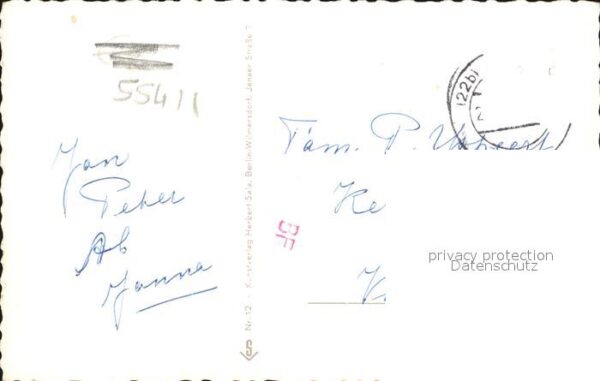 55411
Jan
Peter
Ab
Janna
Nr. 12 · Kunstverlag Herbert Sala, Berlin-Wilmersdorf, Jenaer Straße 7
(22b)
Fam. P.
Ke
V.
BF
privacy protection
Datenschutz